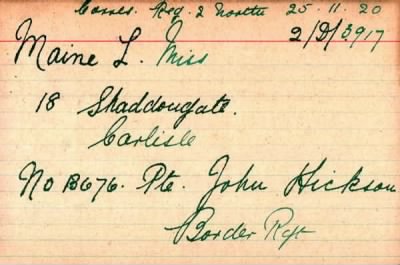 Corres. Reg. 2 North 25.11.20
2/D/3917
Maine L. Miss
18 Shaddongate.
Carlisle
No 13676. Pte. John Hickson
Border Rgt